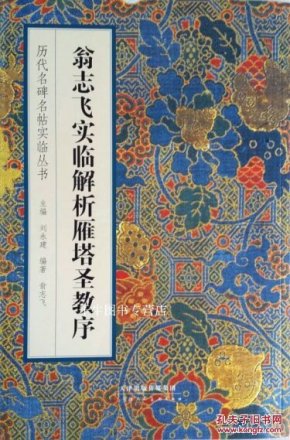 历代名碑名帖实临丛书
翁志飞实临解析雁塔圣教序
主编 刘永建 编著 翁志飞
天津出版传媒集团
孔夫子旧书网